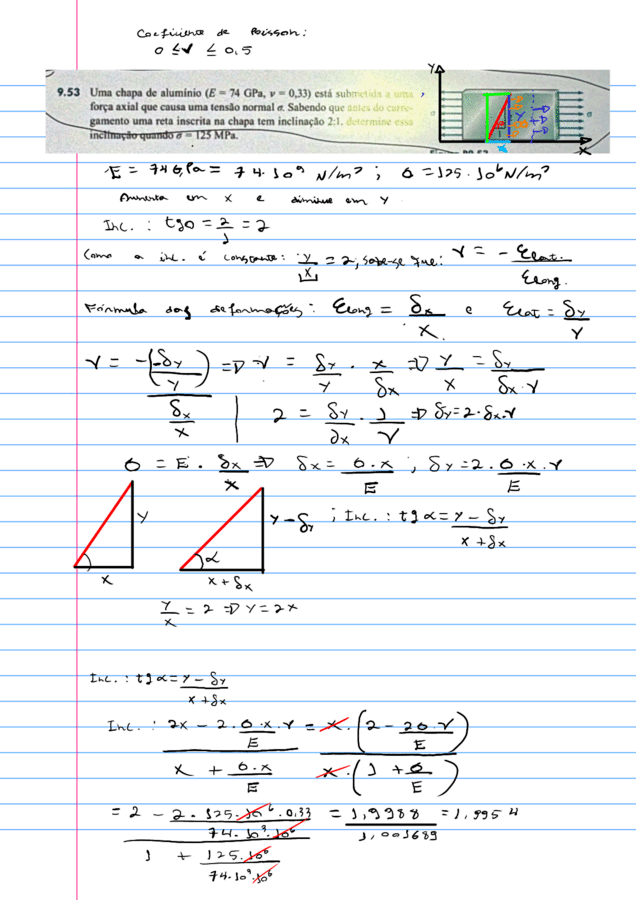 Coeficiente de Poisson:
0 ≤ v ≤ 0,5
9.53 Uma chapa de alumínio (E = 74 GPa, ν = 0,33) está submetida a uma
força axial que causa uma tensão normal σ. Sabendo que antes do carre-
gamento uma reta inscrita na chapa tem inclinação 2:1, determine essa
inclinação quando σ = 125 MPa.
Y
σ
σ
X
E = 74 GPa = 74.10⁹ N/m² ; σ = 125.10⁶ N/m²
Aumenta em X e diminue em Y
Inc.: tgθ = 2/1 = 2
Como a inc. é constante: Y/X = 2, sabe-se que: v = - Elat./Elong.
Fórmula das deformações: Elong = δx/X e Elat = δy/Y
v = -(-δy/Y)/(δx/X) => v = δy/Y . x/δx => Y/X = δy/(δx.v)
2 = δy/δx . 1/v => δy = 2.δx.v
σ = E . δx/x => δx = σ.x/E ; δy = 2.σ.x.v/E
Y
x
Y - δy
α
x + δx
; Inc.: tgα = (Y - δy)/(x + δx)
Y/x = 2 => Y = 2x
Inc.: tgα = (Y - δy)/(x + δx)
Inc.: (2x - 2.σ.x.v/E)/(x + σ.x/E) = x.(2 - 2σ.v/E)/x.(1 + σ/E)
= (2 - 2.125.10⁶.0,33/74.10³.10⁶)/(1 + 125.10⁶/74.10³.10⁶) = 1,9988/1,001689 = 1,9954